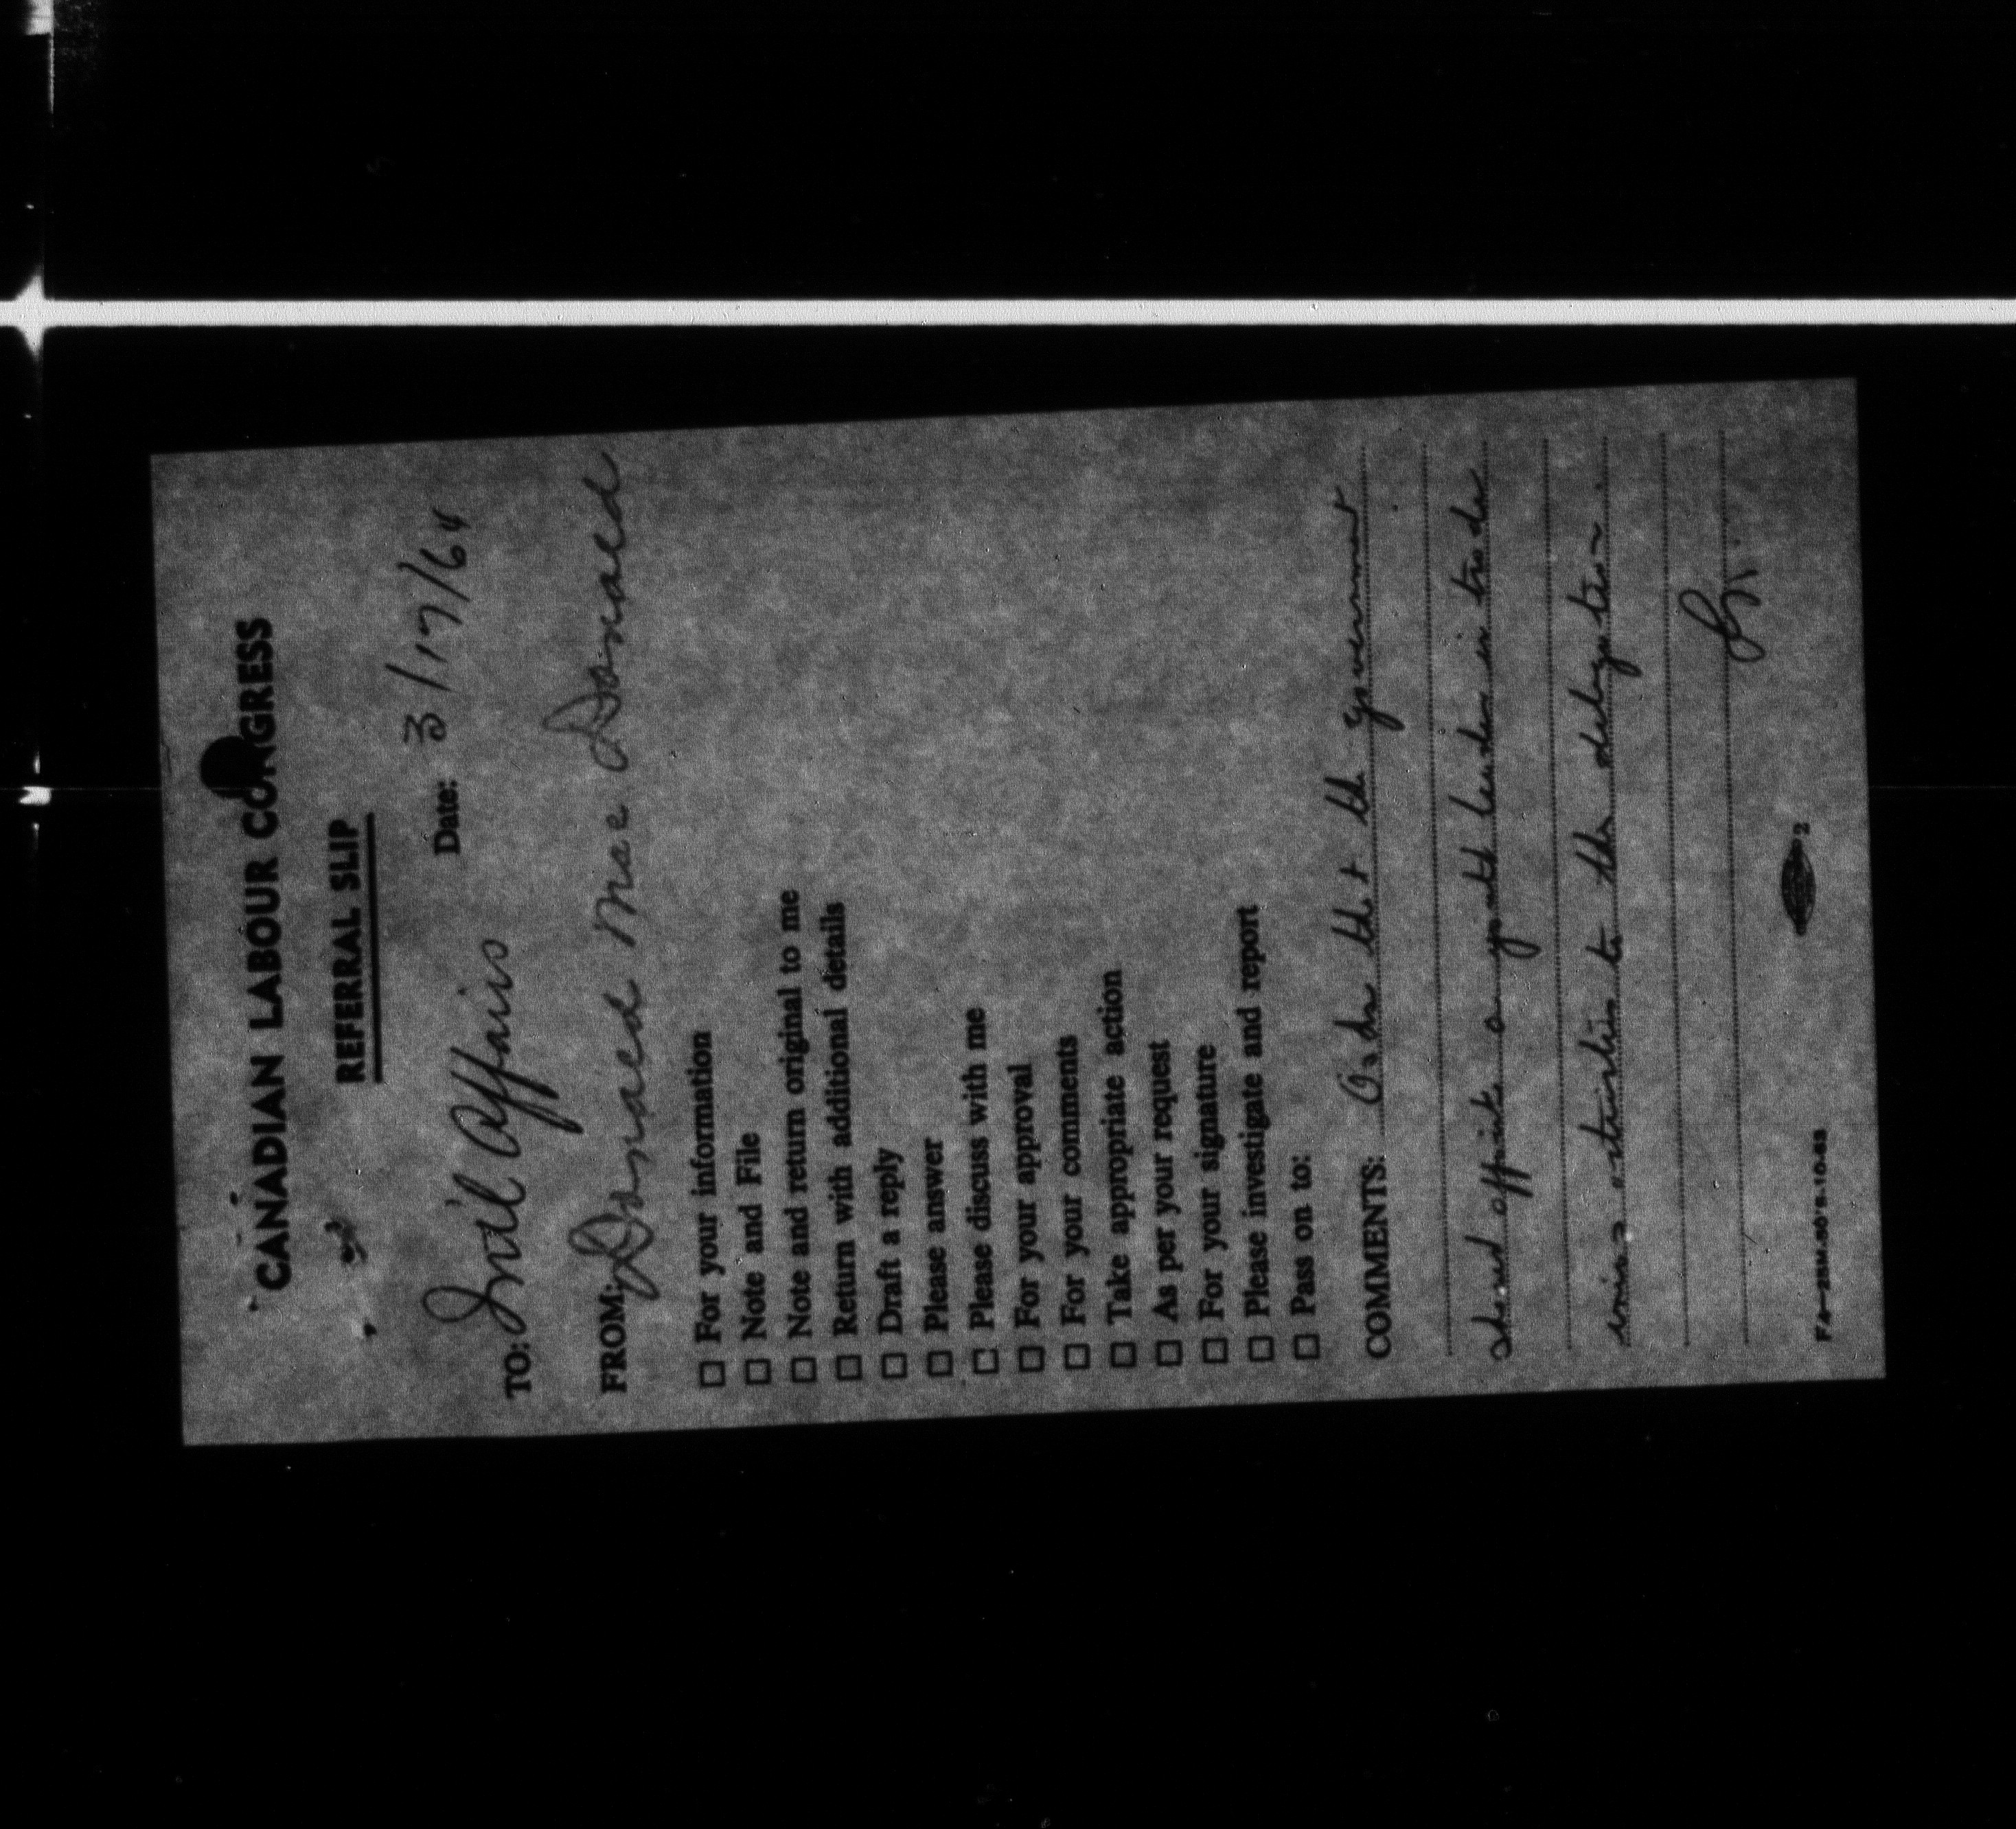 CANADIAN LABOUR CONGRESS
REFERRAL SLIP
Date: 3/17/64
TO: Int'l Affairs
FROM: Donald Mac Donald
☐ For your information
☐ Note and File
☐ Note and return original to me
☐ Return with additional details
☐ Draft a reply
☐ Please answer
☐ Please discuss with me
☐ For your approval
☐ For your comments
☐ Take appropriate action
☐ As per your request
☐ For your signature
☐ Please investigate and report
☐ Pass on to:
COMMENTS: that the government
should appoint a youth leader in trade
union to the delegation.
F4-25M-90's-10-63
2